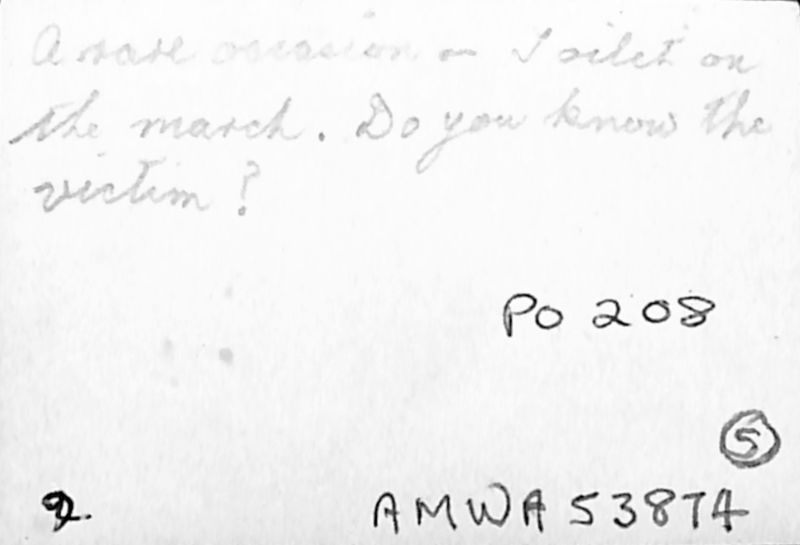 A rare occasion - Toilet on
the march. Do you know the
victim?
PO 208
5
AMWA 53874